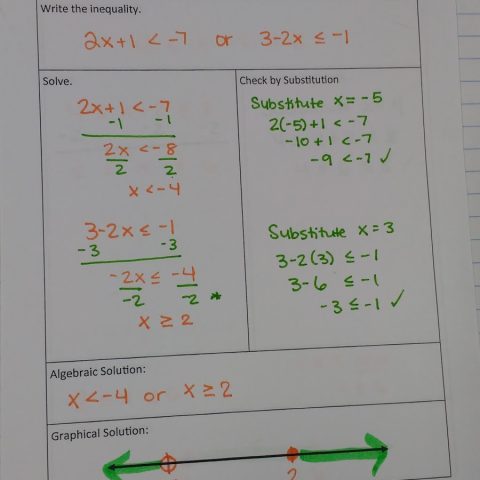 Write the inequality.
2x+1 < -7 or 3-2x ≤ -1
Solve.
2x+1 < -7
-1 -1
2x < -8
2 2
x < -4
3-2x ≤ -1
-3 -3
-2x ≤ -4
-2 -2 *
x ≥ 2
Check by Substitution
Substitute x = -5
2(-5)+1 < -7
-10+1 < -7
-9 < -7 ✓
Substitute x = 3
3-2(3) ≤ -1
3-6 ≤ -1
-3 ≤ -1 ✓
Algebraic Solution:
x < -4 or x ≥ 2
Graphical Solution:
2